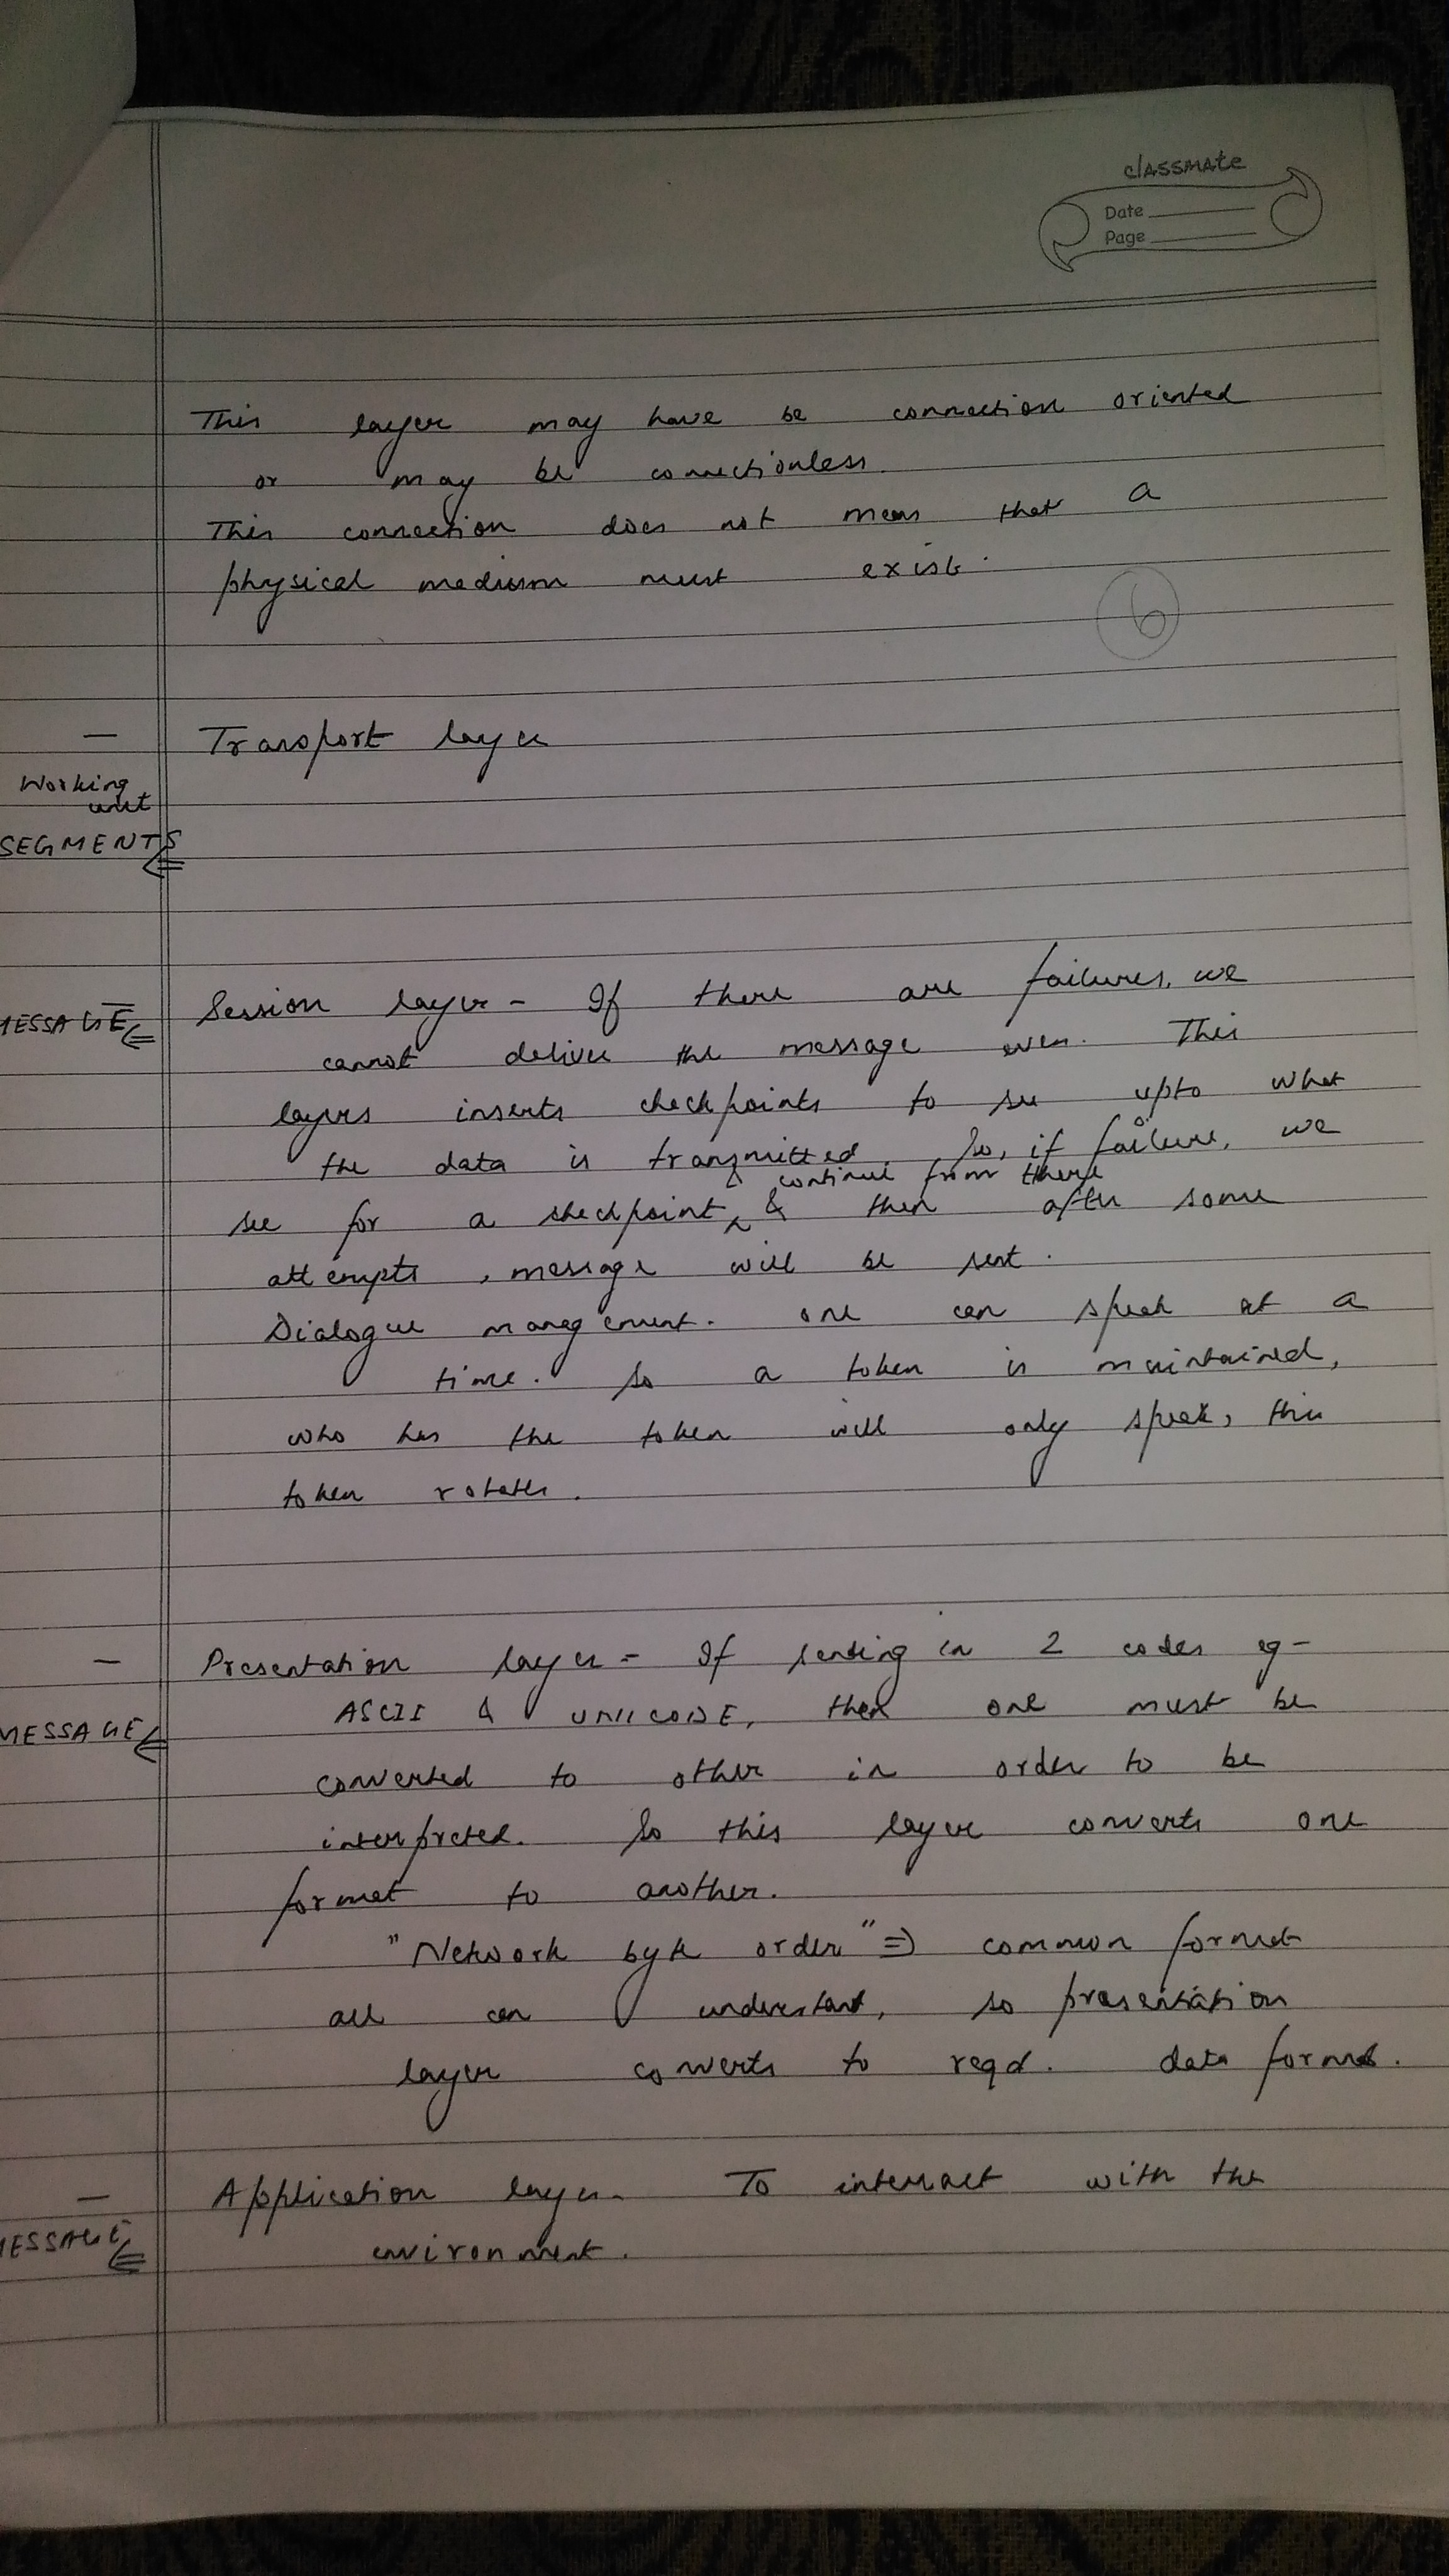 classmate
Date
Page
This layer may have be connection oriented
or may be connectionless.
This connection does not mean that a
physical medium must exist.
6
— Transport layer
Working
unit
SEGMENTS
MESSAGE
Session layer - If there are failures, we
cannot deliver the message even. This
layers inserts checkpoints to see upto what
the data is transmitted. So, if failure, we
continue from there
see for a checkpoint, & then after some
attempts, message will be sent.
Dialogue management. one can speak at a
time. So a token is maintained,
who has the token will only speak, this
token rotates.
— Presentation layer - If sending in 2 codes eg-
MESSAGE
ASCII & UNICODE, then one must be
converted to other in order to be
interpreted. So this layer converts one
format to another.
"Network byte order" => common format
all can understand, so presentation
layer converts to reqd. data format.
— Application layer - To interact with the
MESSAGE
environment.